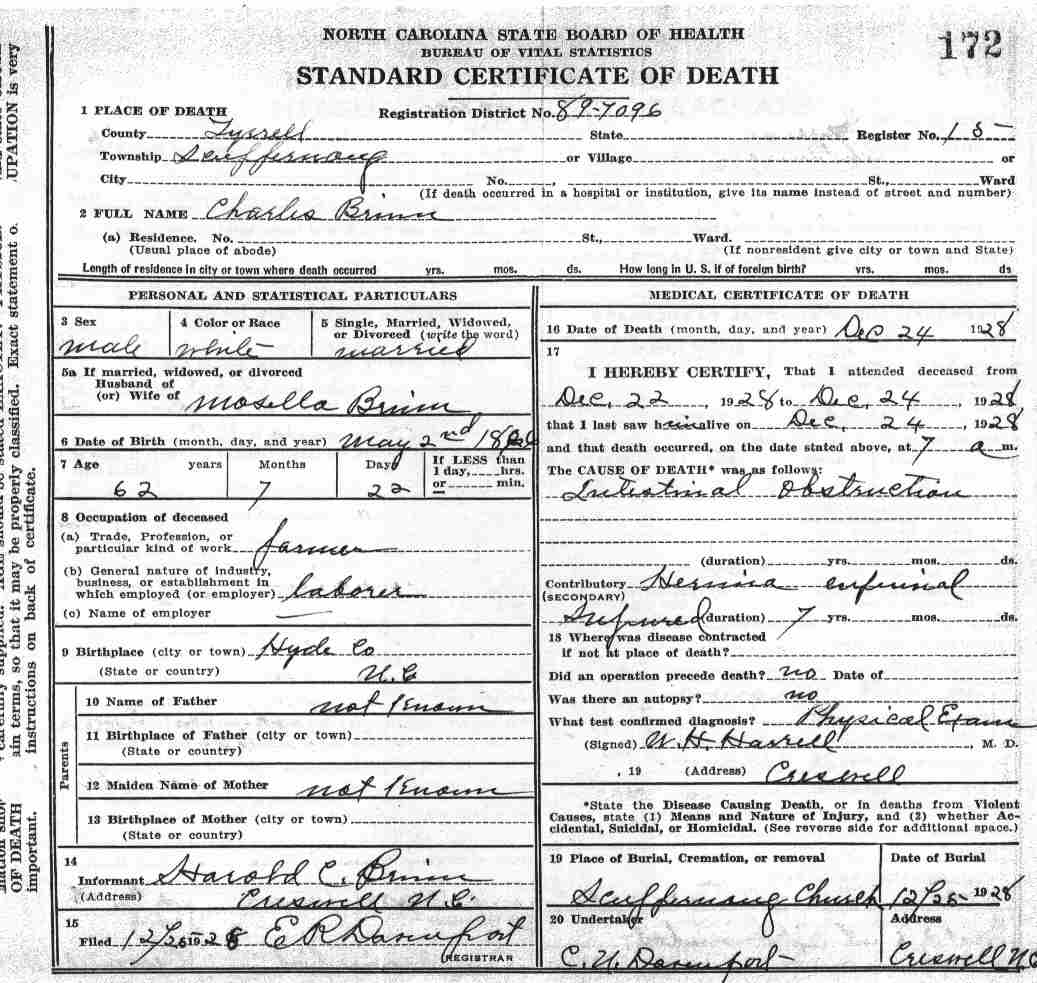 NORTH CAROLINA STATE BOARD OF HEALTH
BUREAU OF VITAL STATISTICS
172
STANDARD CERTIFICATE OF DEATH
1 PLACE OF DEATH
Registration District No. 89-7096
County Tyrrell State Register No. 15
Township Scuppernong or Village or
City No. , St., Ward
(If death occurred in a hospital or institution, give its name instead of street and number)
2 FULL NAME Charles Brinn
(a) Residence. No. St., Ward.
(Usual place of abode) (If nonresident give city or town and State)
Length of residence in city or town where death occurred yrs. mos. ds. How long in U. S. if of foreign birth? yrs. mos. ds
PERSONAL AND STATISTICAL PARTICULARS
3 Sex 4 Color or Race 5 Single, Married, Widowed,
or Divorced (write the word)
male white married
5a If married, widowed, or divorced
Husband of
(or) Wife of Mosella Brinn
6 Date of Birth (month, day, and year) May 2nd
7 Age years Months Days If LESS than
1 day, hrs.
or min.
62 7 22
8 Occupation of deceased
(a) Trade, Profession, or
particular kind of work farmer
(b) General nature of industry,
business, or establishment in
which employed (or employer) laborer
(c) Name of employer
9 Birthplace (city or town) Hyde Co
(State or country) N.C
Parents
10 Name of Father not Known
11 Birthplace of Father (city or town)
(State or country)
12 Maiden Name of Mother not Known
13 Birthplace of Mother (city or town)
(State or country)
14
Informant Harold C. Brinn
(Address) Creswell N.C.
15
Filed 12/25 1928 E R Davenport
REGISTRAR
MEDICAL CERTIFICATE OF DEATH
16 Date of Death (month, day, and year) Dec 24 1928
17
I HEREBY CERTIFY, That I attended deceased from
Dec, 22, 1928 to Dec, 24, 1928
that I last saw him alive on Dec, 24, 1928
and that death occurred, on the date stated above, at 7 a m.
The CAUSE OF DEATH* was as follows:
Intestinal Obstruction
(duration) yrs. mos. ds.
Contributory Hernia
(SECONDARY)
(duration) 7 yrs. mos. ds.
18 Where was disease contracted
if not at place of death?
Did an operation precede death? no Date of
Was there an autopsy? no
What test confirmed diagnosis? Physical Exam
(Signed) W. H. Harrell, M. D.
, 19 (Address) Creswell
*State the Disease Causing Death, or in deaths from Violent
Causes, state (1) Means and Nature of Injury, and (2) whether Ac-
cidental, Suicidal, or Homicidal. (See reverse side for additional space.)
19 Place of Burial, Cremation, or removal Date of Burial
Scuppernong Church 12/25 1928
20 Undertaker Address
C. N. Davenport Creswell N.C
UPATION is very
Exact statement o.
so that it may be properly classified.
instructions on back of certificate.
ain terms,
OF DEATH
important.